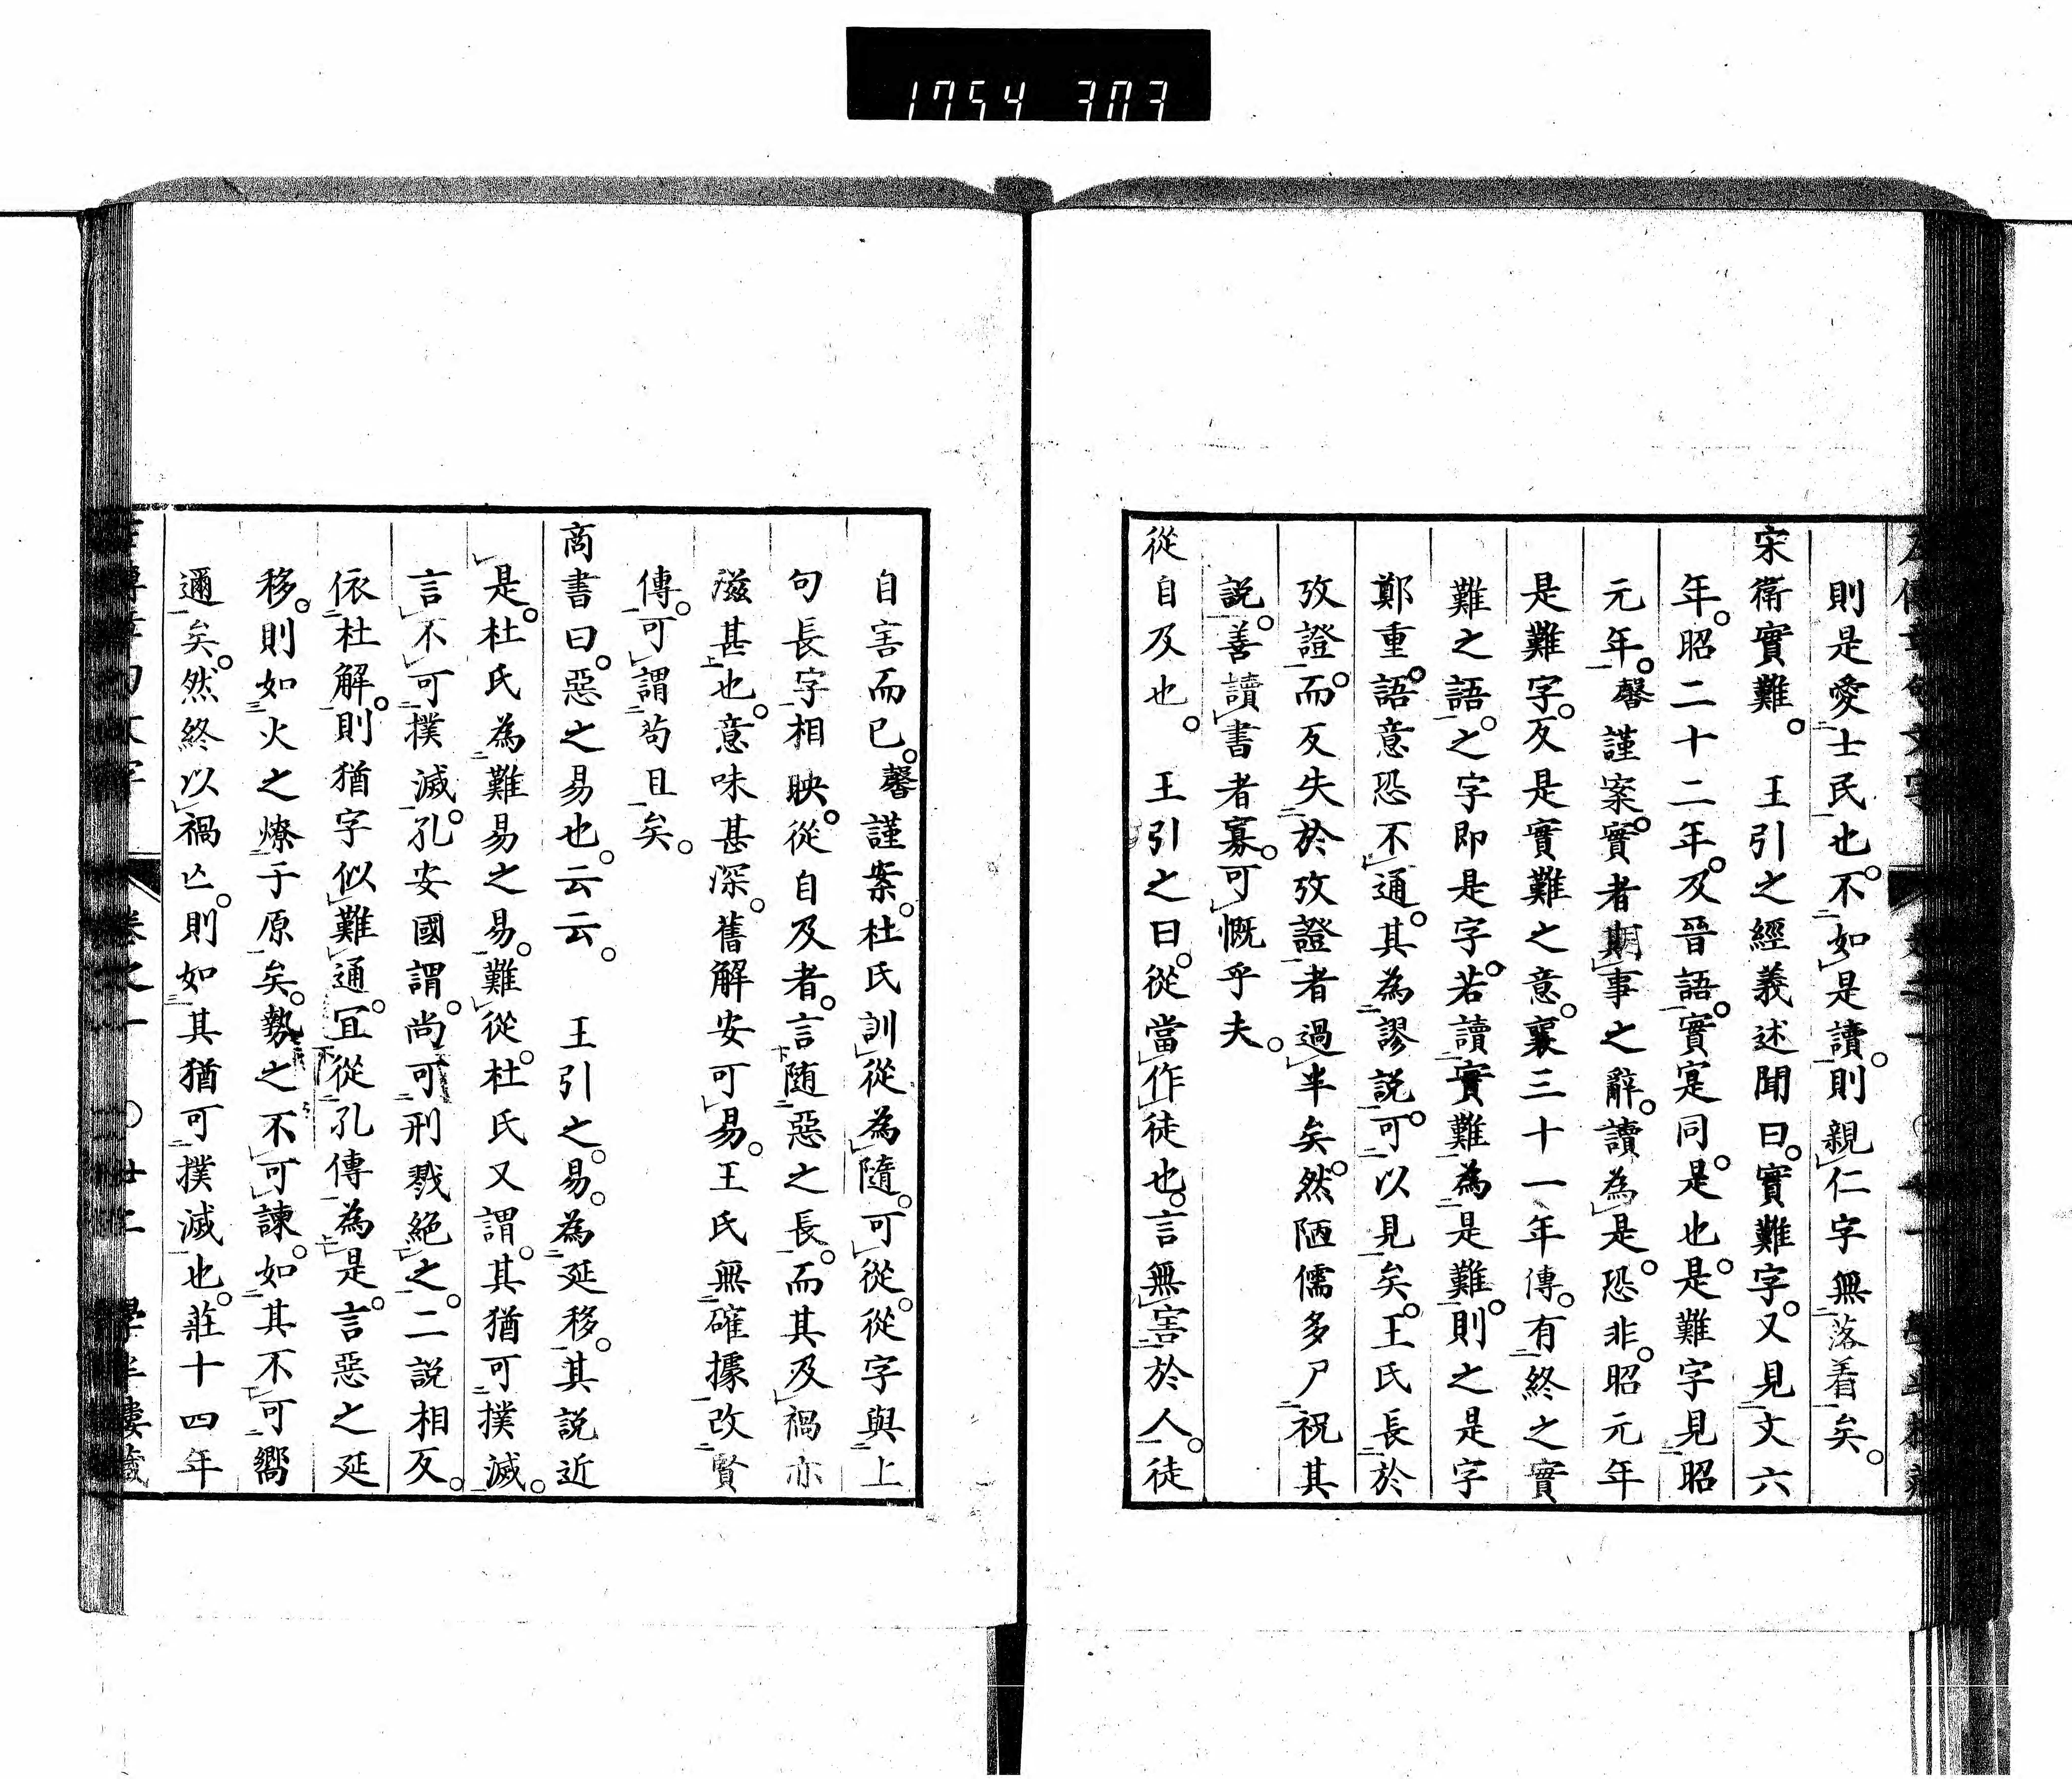 1754 303
則是愛士民也。不如是讀。則親仁字無落着矣。
宋衛實難。　王引之經義述聞曰。實難字。又見文六
年。昭二十二年。及晉語。實寔同。是也。是難字見昭
元年。馨謹案。實者期事之辭。讀為是。恐非。昭元年
是難字。反是實難之意。襄三十一年傳。有終之實
難之語。之字即是字。若讀實難為是難。則之是字
鄭重。語意恐不通。其為謬說。可以見矣。王氏長於
攷證。而反失於攷證者過半矣。然陋儒多尸祝其
説。善讀書者寡。可慨乎夫。
從自及也。　王引之曰。從當作徒也。言無害於人。徒
自害而已。馨謹案。杜氏訓從為隨。可從。從字與上
句長字相映。從自及者。言随惡之長。而其及禍亦
滋甚也。意味甚深。舊解安可易。王氏無確據改賢
傳。可謂苟且矣。
商書曰。惡之易也。云云。　王引之。易。為延移。其說近
是。杜氏為難易之易。難從。杜氏又謂。其猶可撲滅。
言不可撲滅。孔安國謂。尚可刑戮絕之。二說相反。
依杜解。則猶字似難通。宜從孔傳為是。言惡之延
移。則如火之燎于原矣。勢之不可諫。如其不可嚮
邇矣。然終以禍亡。則如其猶可撲滅也。莊十四年
卷之一　〇廿二　學半樓藏